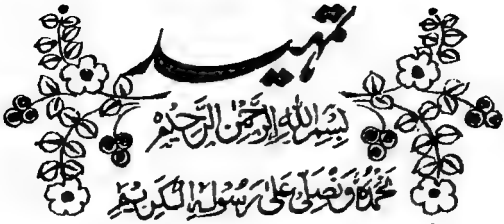 تمہید
بِسْمِ اللهِ الرَّحْمٰنِ الرَّحِيْمِ
نَحْمَدُهٗ وَنُصَلِّیْ عَلٰی رَسُوْلِهِ الْكَرِيْمِ